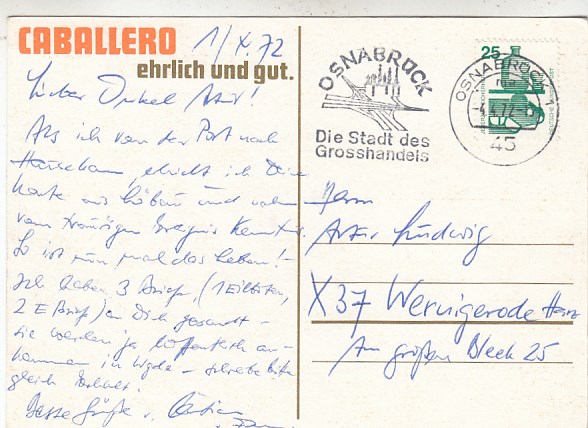 CABALLERO
ehrlich und gut.
1/X.72
Lieber Onkel Artur!
Als ich von der Post nach
Hause kam, erhielt ich Deine
Karte aus Löbau und nahm
vom traurigen Ereignis Kenntnis.
So ist nun mal das Leben! -
Ich haben 3 Briefe, (1 Eilbrief,
2 E Brief) an Dich gesandt -
sie werden ja hoffentlich an-
kommen in - schreibe bitte
gleich
Beste Grüße v.
OSNABRÜCK
Die Stadt des
Grosshandels
OSNABRÜCK 1
-4.4.72
45
25
Herrn
Artur Ludwig
X37 Wernigerode Harz
Am großen Bleek 25